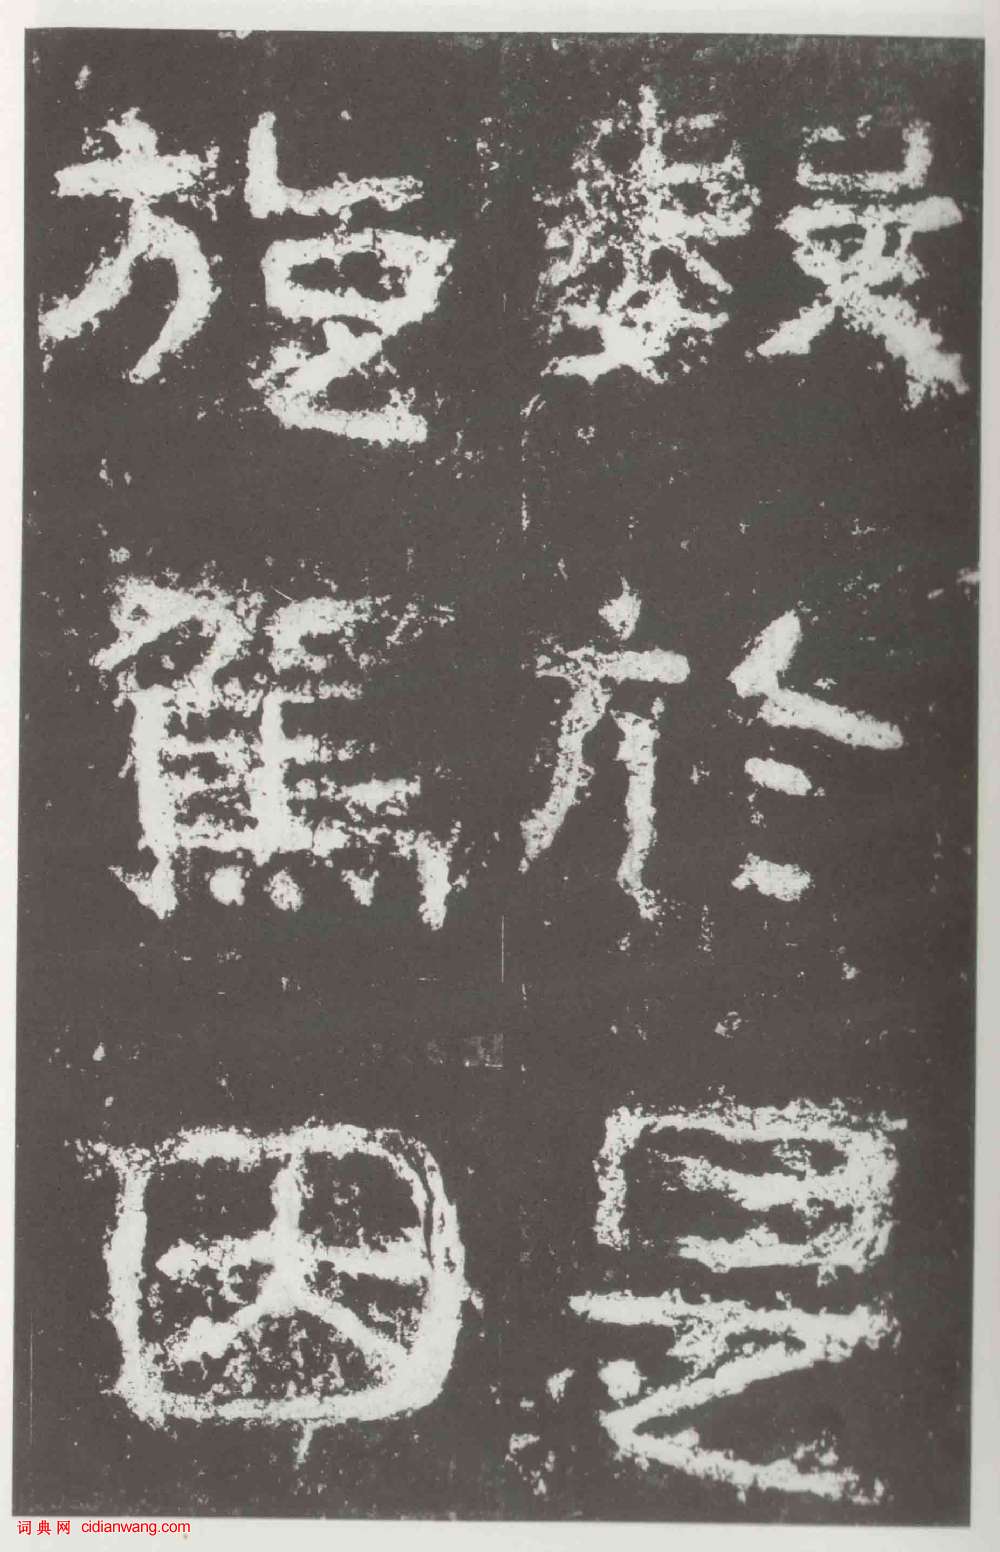 數於是
旋駕因
词典网 cidianwang.com